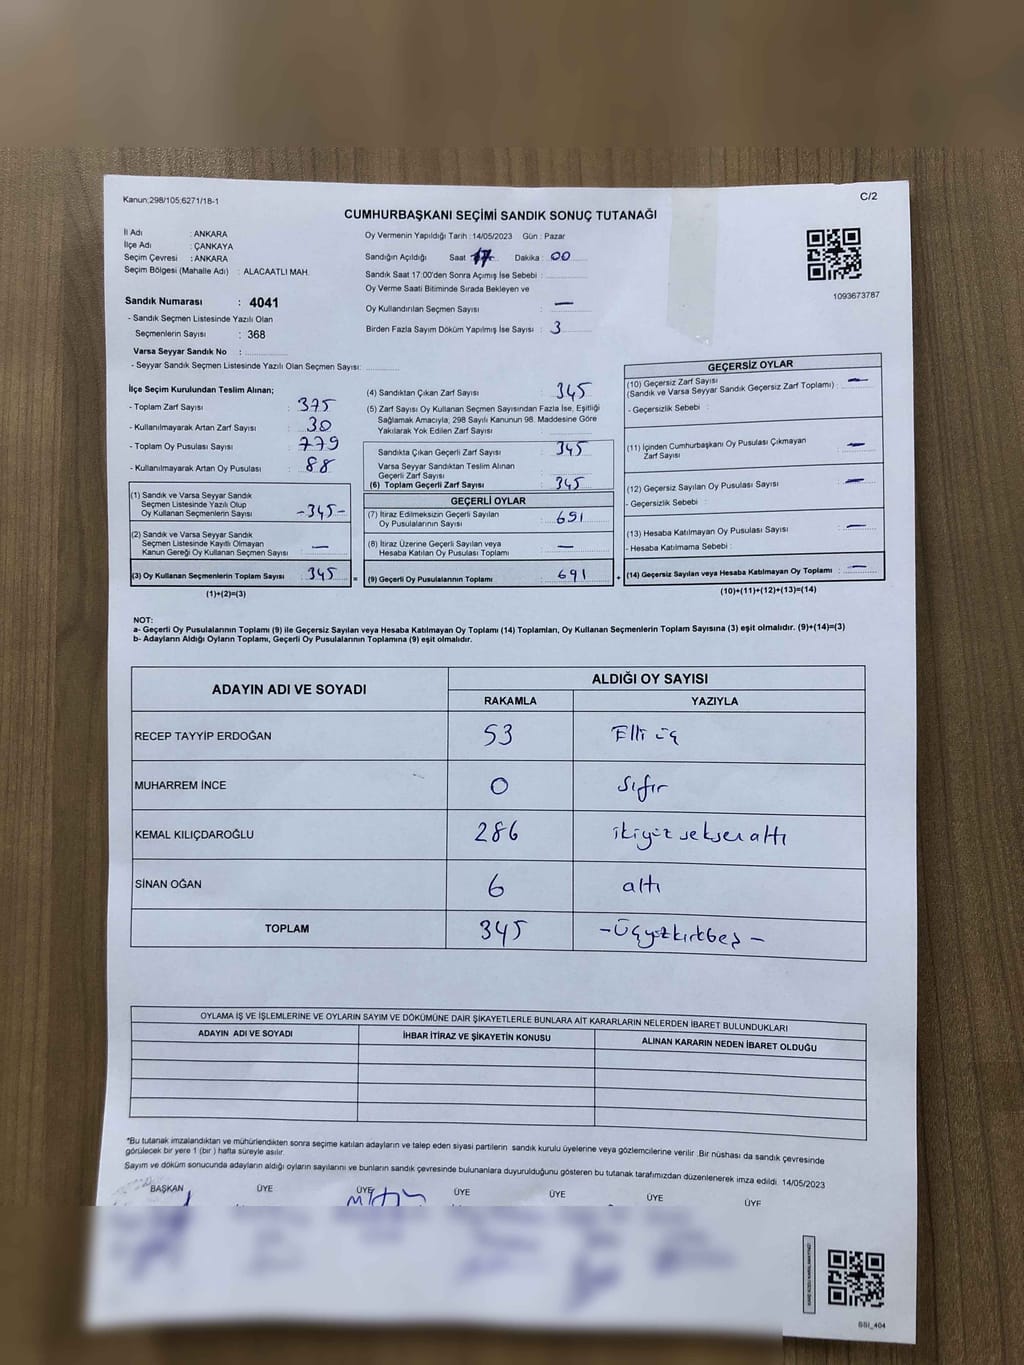 Kanun;298/105;6271/18-1
C/2
CUMHURBAŞKANI SEÇİMİ SANDIK SONUÇ TUTANAĞI
İl Adı : ANKARA
İlçe Adı : ÇANKAYA
Seçim Çevresi : ANKARA
Seçim Bölgesi (Mahalle Adı) : ALACAATLI MAH.
Sandık Numarası : 4041
- Sandık Seçmen Listesinde Yazılı Olan
Seçmenlerin Sayısı : 368
Varsa Seyyar Sandık No :
- Seyyar Sandık Seçmen Listesinde Yazılı Olan Seçmen Sayısı:
Oy Vermenin Yapıldığı Tarih : 14/05/2023 Gün : Pazar
Sandığın Açıldığı Saat 17 Dakika : 00
Sandık Saat 17:00'den Sonra Açımış İse Sebebi :
Oy Verme Saati Bitiminde Sırada Bekleyen ve
Oy Kullandırılan Seçmen Sayısı : —
Birden Fazla Sayım Döküm Yapılmış İse Sayısı : 3
1093673787
İlçe Seçim Kurulundan Teslim Alınan;
- Toplam Zarf Sayısı : 375
- Kullanılmayarak Artan Zarf Sayısı : 30
- Toplam Oy Pusulası Sayısı : 779
- Kullanılmayarak Artan Oy Pusulası : 88
(1) Sandık ve Varsa Seyyar Sandık
Seçmen Listesinde Yazılı Olup
Oy Kullanan Seçmenlerin Sayısı : -345-
(2) Sandık ve Varsa Seyyar Sandık
Seçmen Listesinde Kayıtlı Olmayan
Kanun Gereği Oy Kullanan Seçmen Sayısı : —
(3) Oy Kullanan Seçmenlerin Toplam Sayısı : 345
(1)+(2)=(3)
=
(4) Sandıktan Çıkan Zarf Sayısı : 345
(5) Zarf Sayısı Oy Kullanan Seçmen Sayısından Fazla İse, Eşitliği
Sağlamak Amacıyla; 298 Sayılı Kanunun 98. Maddesine Göre
Yakılarak Yok Edilen Zarf Sayısı :
Sandıkta Çıkan Geçerli Zarf Sayısı : 345
Varsa Seyyar Sandıktan Teslim Alınan
Geçerli Zarf Sayısı :
(6) Toplam Geçerli Zarf Sayısı : 345
GEÇERLİ OYLAR
(7) İtiraz Edilmeksizin Geçerli Sayılan
Oy Pusulalarının Sayısı : 691
(8) İtiraz Üzerine Geçerli Sayılan veya
Hesaba Katılan Oy Pusulası Toplamı : —
(9) Geçerli Oy Pusulalarının Toplamı : 691
+
GEÇERSİZ OYLAR
(10) Geçersiz Zarf Sayısı
(Sandık ve Varsa Seyyar Sandık Geçersiz Zarf Toplamı) : —
- Geçersizlik Sebebi :
(11) İçinden Cumhurbaşkanı Oy Pusulası Çıkmayan
Zarf Sayısı : —
(12) Geçersiz Sayılan Oy Pusulası Sayısı : —
- Geçersizlik Sebebi :
(13) Hesaba Katılmayan Oy Pusulası Sayısı : —
- Hesaba Katılmama Sebebi :
(14) Geçersiz Sayılan veya Hesaba Katılmayan Oy Toplamı : —
(10)+(11)+(12)+(13)=(14)
NOT:
a- Geçerli Oy Pusulalarının Toplamı (9) ile Geçersiz Sayılan veya Hesaba Katılmayan Oy Toplamı (14) Toplamları, Oy Kullanan Seçmenlerin Toplam Sayısına (3) eşit olmalıdır. (9)+(14)=(3)
b- Adayların Aldığı Oyların Toplamı, Geçerli Oy Pusulalarının Toplamına (9) eşit olmalıdır.
ADAYIN ADI VE SOYADI
ALDIĞI OY SAYISI
RAKAMLA YAZIYLA
RECEP TAYYİP ERDOĞAN 53 Elli üç
MUHARREM İNCE 0 Sıfır
KEMAL KILIÇDAROĞLU 286 ikiyüz seksen altı
SİNAN OĞAN 6 altı
TOPLAM 345 -Üçyüzkırkbeş-
OYLAMA İŞ VE İŞLEMLERİNE VE OYLARIN SAYIM VE DÖKÜMÜNE DAİR ŞİKAYETLERLE BUNLARA AİT KARARLARIN NELERDEN İBARET BULUNDUKLARI
ADAYIN ADI VE SOYADI İHBAR İTİRAZ VE ŞİKAYETİN KONUSU ALINAN KARARIN NEDEN İBARET OLDUĞU
*Bu tutanak imzalandıktan ve mühürlendikten sonra seçime katılan adayların ve talep eden siyasi partilerin sandık kurulu üyelerine veya gözlemcilerine verilir .Bir nüshası da sandık çevresinde
görülecek bir yere 1 (bir ) hafta süreyle asılır.
Sayım ve döküm sonucunda adayların aldığı oyların sayılarını ve bunların sandık çevresinde bulunanlara duyurulduğunu gösteren bu tutanak tarafımızdan düzenlenerek imza edildi. 14/05/2023
BAŞKAN ÜYE ÜYE ÜYE ÜYE ÜYE ÜYE